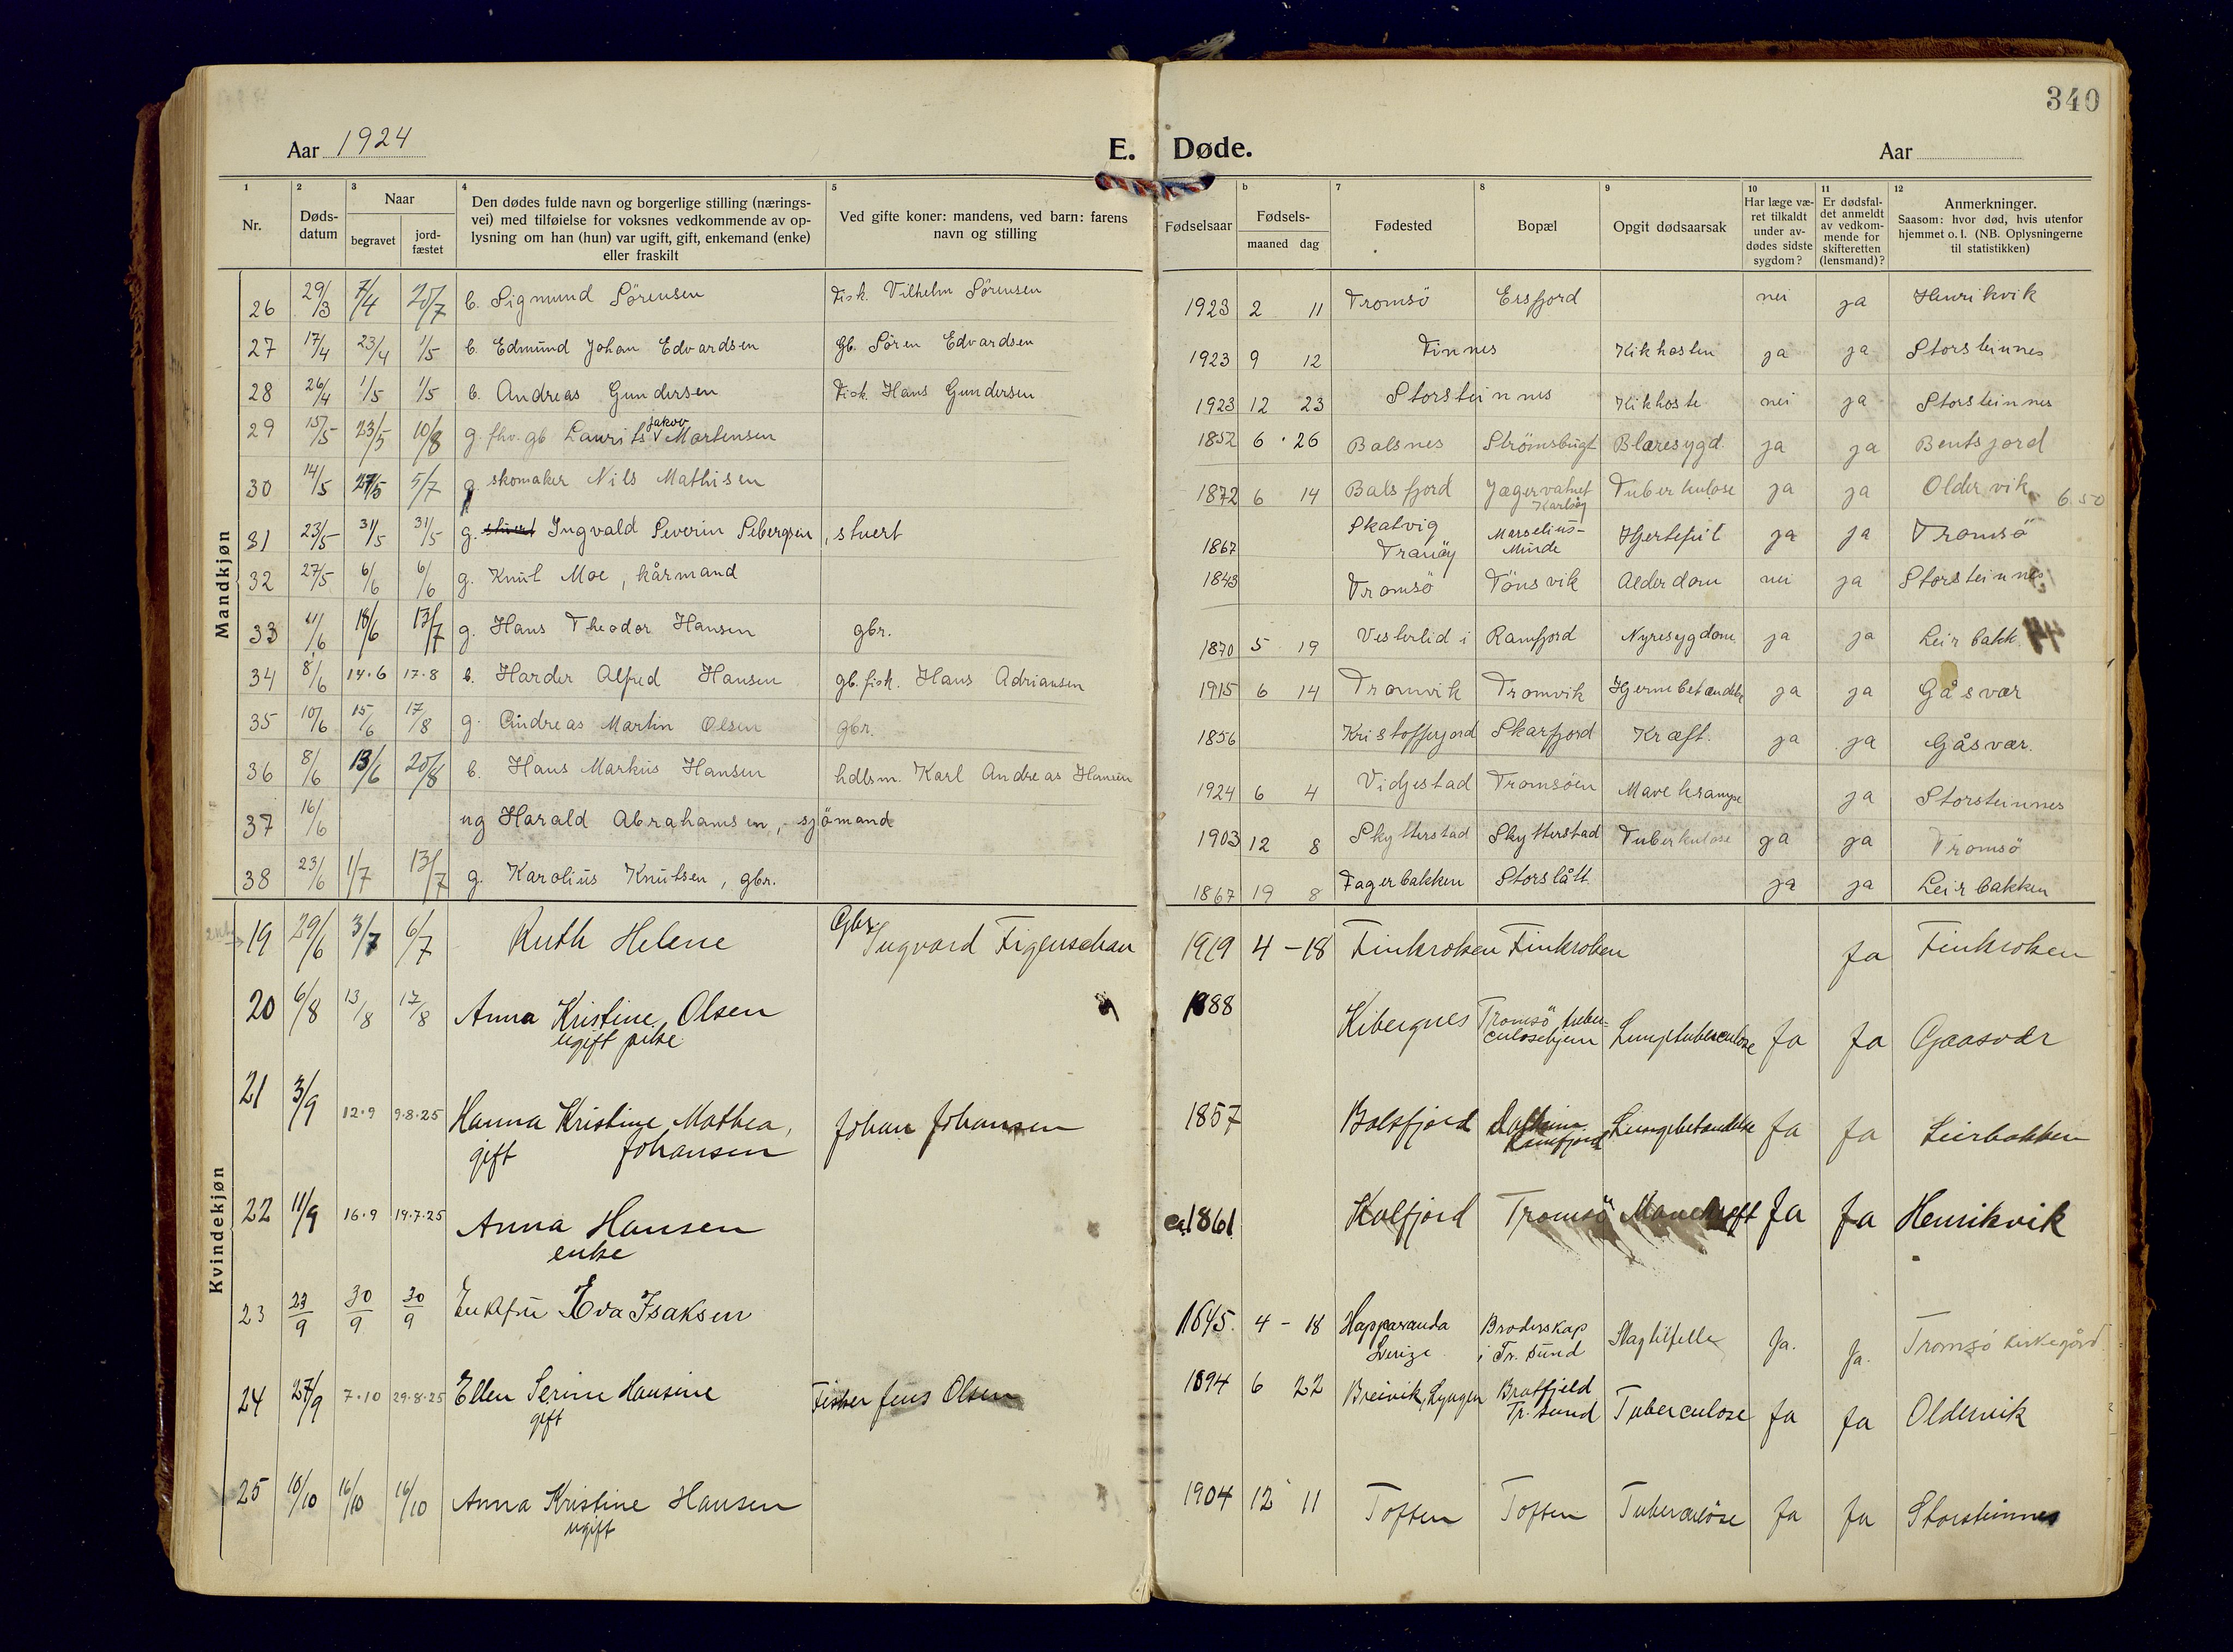 340
Aar 1924
E. Døde.
Aar
1 2 3 4 5 6 7 8 9 10 11 12
Nr.
Døds-
datum
Naar
begravet
jord-
fæstet
Den dødes fulde navn og borgerlige stilling (nærings-
vei) med tilføielse for voksnes vedkommende av op-
lysning om han (hun) var ugift, gift, enkemand (enke)
eller fraskilt
Ved gifte koner: mandens, ved barn: farens
navn og stilling
Fødselsaar
Fødsels-
maaned dag
Fødested
Bopæl
Opgit dødsaarsak
Har læge væ-
ret tilkaldt
under av-
dødes sidste
sygdom?
Er dødsfal-
det anmeldt
av vedkom-
mende for
skifteretten
(lensmand)?
Anmerkninger.
Saasom: hvor død, hvis utenfor
hjemmet o. l. (NB. Oplysningerne
til statistikken)
Mandkjøn
26 29/3 7/4 20/7 b. Sigmund Sörensen Fisk. Vilhelm Sörensen 1923 2 11 Tromsö Ersfjord nei ja Henrikvik
27 17/4 23/4 1/5 b. Edmund Johan Edvardsen Gb. Sören Edvardsen 1923 9 12 Finnes Kikhosten ja ja Storsteinnes
28 26/4 1/5 1/5 b. Andreas Gundersen Fisk. Hans Gundersen 1923 12 23 Storsteinnes Kikhoste nei ja Storsteinnes
29 15/5 23/5 10/8 g. fhv. gb Laurits Jakov Martensen 1852 6 26 Balsnes Strömsbugt Blæresygd. ja ja Bentsjord
30 14/5 27/5 5/7 g skomaker Nils Mathisen 1872 6 14 Balsfjord Jægervatnet Karlsöy Tuberkulose ja ja Oldervik 6.50
31 23/5 31/5 31/5 g. stuert Ingvald Severin Sebergsen, stuert 1867 Skatvig Tranöy Marselius-Minde Hjertefeil ja ja Tromsö
32 27/5 6/6 6/6 g. Knut Moe, kårmand 1843 Tromsö Tönsvik Alderdom nei ja Storsteinnes
33 11/6 18/6 13/7 g. Hans Theodor Hansen gbr. 1870 5 19 Vesterlid i Ramfjord Nyresygdom ja ja Leirbakk
34 8/6 14.6 17.8 b. Harder Alfred Hansen gb. fisk. Hans Adriansen 1915 6 14 Tromvik Tromvik Hjernebetændelse ja ja Gåsvær
35 10/6 15/6 17/8 g. Andreas Martin Olsen gbr. 1856 Kristofferjord Skarfjord Kræft. ja ja Gåsvær.
36 8/6 13/6 20/8 b. Hans Markus Hansen hdlsm. Karl Andreas Hansen 1924 6 4 Vidjestad Tromsöen Mavekrampe ja Storsteinnes
37 16/6 ug Harald Abrahamsen, sjömand 1903 12 8 Skytterstad Skytterstad Tuberkulose ja ja Tromsö
38 23/6 1/7 13/7 g. Karolius Knutsen, gbr. 1867 19 8 Fagerbakken Storslått ja ja Leirbakken
Kvindekjøn
19 29/6 3/7 6/7 Ruth Helene Gbr. Ingvard Figenschau 1919 4-18 Finkroken Finkroken Ja Finkroken
20 6/8 13/8 17/8 Anna Kristine Olsen 1888 Kibergnes Tromsö tuber-culosehjem Lungetuberculose Ja Ja Gaasvær
ugift pike
21 3/9 12.9 9.8.25 Hanna Kristine Mathea, Johan Johansen 1857 Balsfjord Ramfjord Lungebetændelse Ja Ja Leirbakken
gift Johansen
22 11/9 16.9 19.7.25 Anna Hansen ca. 1861 Kalfjord Tromsö Mavekræft Ja Ja Henrikvik
enke
23 23/9 30/9 30/9 Enkefru Eva Isaksen 1845. 4-18 Happaranda Sverige Broderskap i Tr. sund Slagtilfelle Ja. Ja. Tromsö kirkegård.
24 27/9 7.10 29.8.25 Ellen Serine Hansine Fisker Jens Olsen 1894 6 22 Breivik, Lyngen Bratfjeld Tr. sund Tuberculose Ja Ja Oldervik
gift
25 10/10 16/10 16/10 Anna Kristine Hansen 1904 12 11 Toften Toften Tuberculöse Ja Ja Storsteinnes
ugift